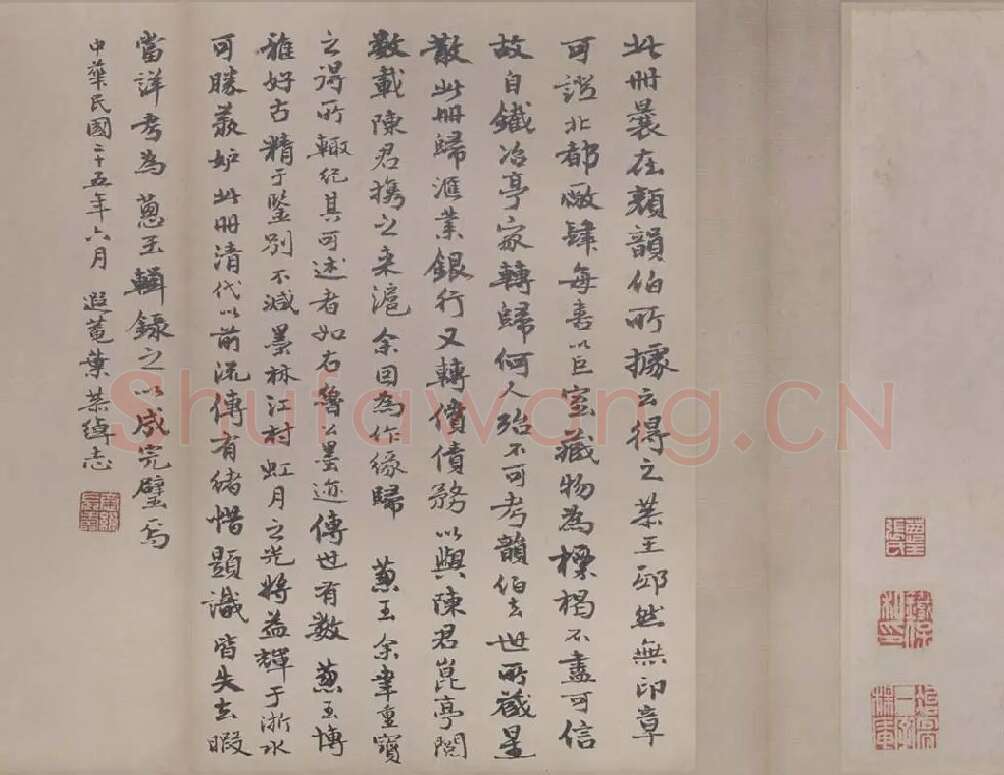 此冊曩在顏韻伯所據云得之恭王邸然無印章
可證北都廠肆每喜以巨室藏物為標榜不盡可信
故自鐵冶亭家轉歸何人殆不可考韻伯去世所藏星
散此冊歸滙業銀行又轉償債務以與陳君崑亭閱
數載陳君携之来滬余因為作緣歸 蔥玉余聿重寶
之得所輒紀其可述者如右魯公墨迹傳世有數蔥玉博
雅好古精于鑒別不減墨林江村虹月之光將益輝于浙水
可勝羨妒此冊清代以前流傳有緒惜題識皆失去暇
當詳考為蔥玉輯錄之以成完璧焉
中華民國二十五年六月 遐菴葉恭綽志
Shufawang.CN